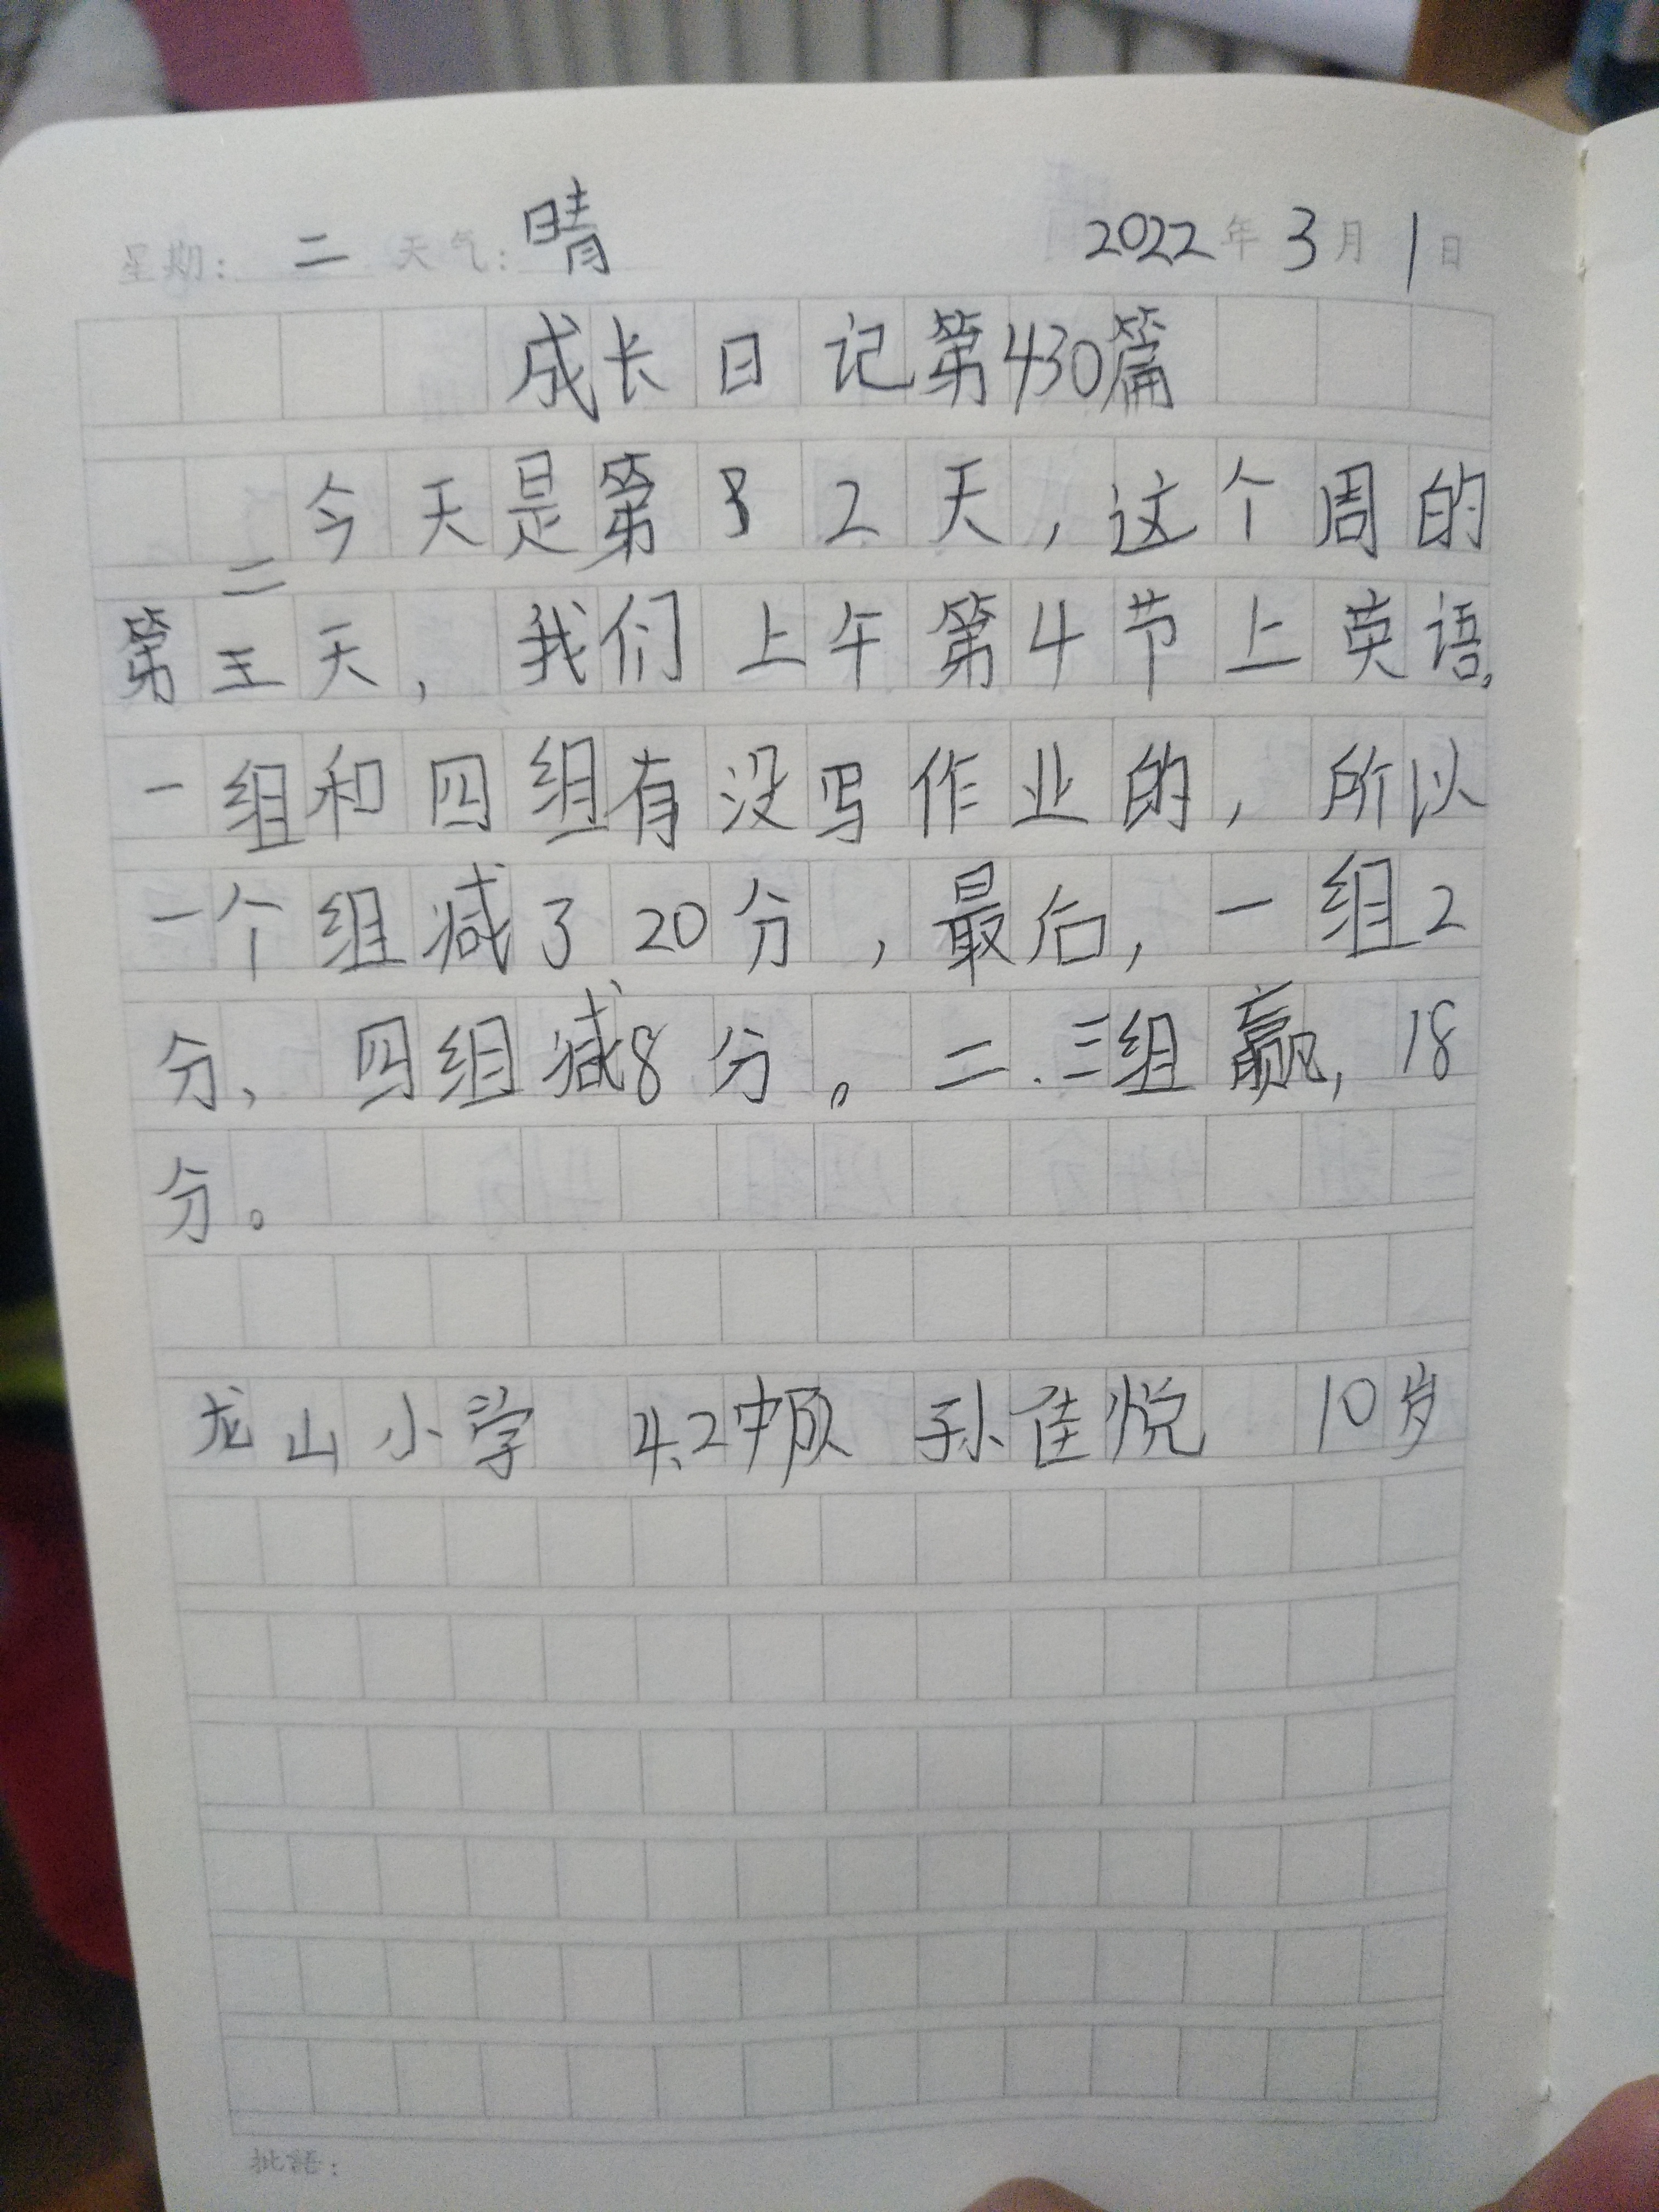 星期：二 天气：晴 2022年3月1日
成长日记第430篇
今天是第32天，这个周的
第二天，我们上午第4节上英语，
一组和四组有没写作业的，所以
一个组减了20分，最后，一组2
分、四组减8分。二.三组赢，18
分。
龙山小学 4.2中队 孙佳悦 10岁
批語：